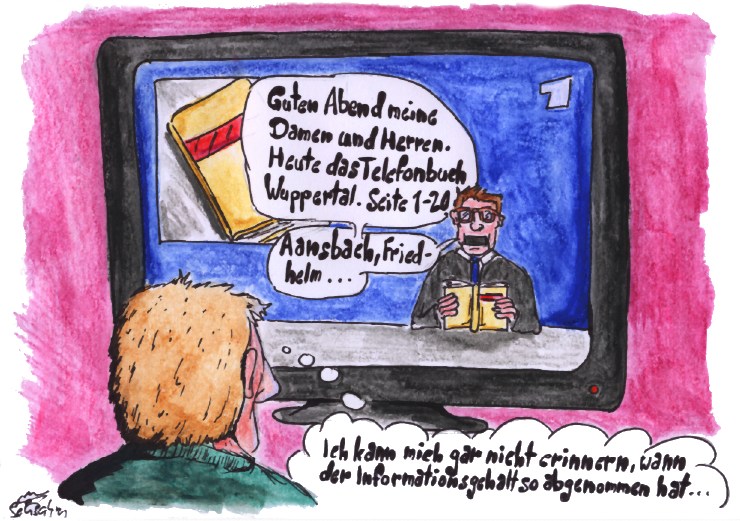 Guten Abend meine
Damen und Herren.
Heute das Telefonbuch
Wuppertal. Seite 1-20
Aansbach, Fried-
helm...
1
Ich kann mich gar nicht erinnern, wann
der Informationsgehalt so abgenommen hat...